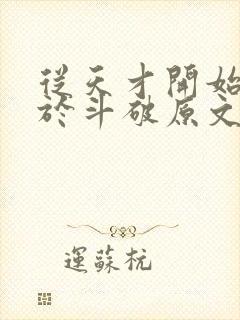 從天才開始
於斗破原文
運蘇杭